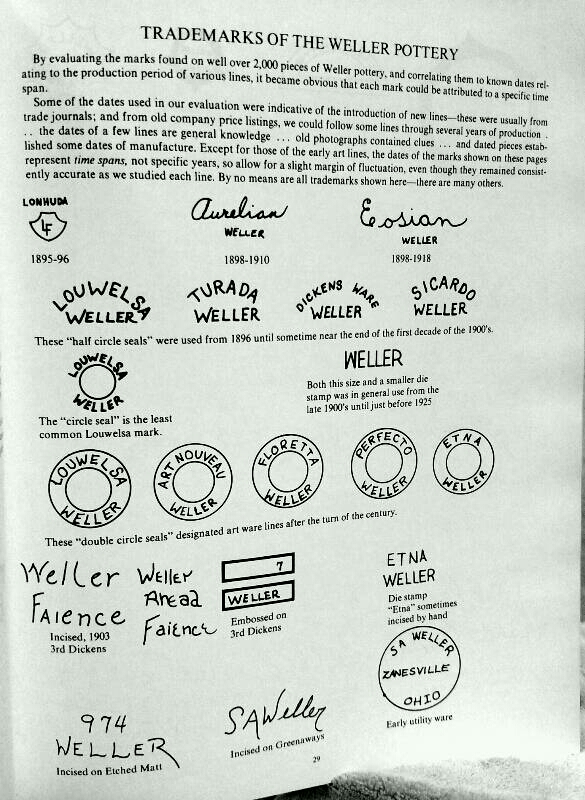 TRADEMARKS OF THE WELLER POTTERY
By evaluating the marks found on well over 2,000 pieces of Weller pottery, and correlating them to known dates rel-
ating to the production period of various lines, it became obvious that each mark could be attributed to a specific time
span.
Some of the dates used in our evaluation were indicative of the introduction of new lines—these were usually from
trade journals; and from old company price listings, we could follow some lines through several years of production .
. . the dates of a few lines are general knowledge ... old photographs contained clues ... and dated pieces estab-
lished some dates of manufacture. Except for those of the early art lines, the dates of the marks shown on these pages
represent time spans, not specific years, so allow for a slight margin of fluctuation, even though they remained consist-
ently accurate as we studied each line. By no means are all trademarks shown here—there are many others.
LONHUDA
LF
1895-96
Aurelian
WELLER
1898-1910
Eosian
WELLER
1898-1918
LOUWELSA
WELLER
TURADA
WELLER
DICKENS WARE
WELLER
SICARDO
WELLER
These "half circle seals" were used from 1896 until sometime near the end of the first decade of the 1900's.
LOUWELSA
WELLER
The "circle seal" is the least
common Louwelsa mark.
WELLER
Both this size and a smaller die
stamp was in general use from the
late 1900's until just before 1925
LOUWELSA
WELLER
ART NOUVEAU
WELLER
FLORETTA
WELLER
PERFECTO
WELLER
ETNA
WELLER
These "double circle seals" designated art ware lines after the turn of the century.
Weller
FAIENCE
Incised, 1903
3rd Dickens
Weller
Rhead
Faience
7
WELLER
Embossed on
3rd Dickens
ETNA
WELLER
Die stamp
"Etna" sometimes
incised by hand
SA WELLER
ZANESVILLE
OHIO
Early utility ware
974
WELLER
Incised on Etched Matt
SAWeller
Incised on Greenaways
29